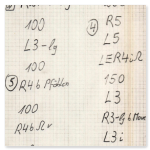 100
L3-lg
100
⑤ R4b Pfosten
100
R4b Rv
④ R5
L5
LER4iR
150
L3
R3-lg b Move
L3i